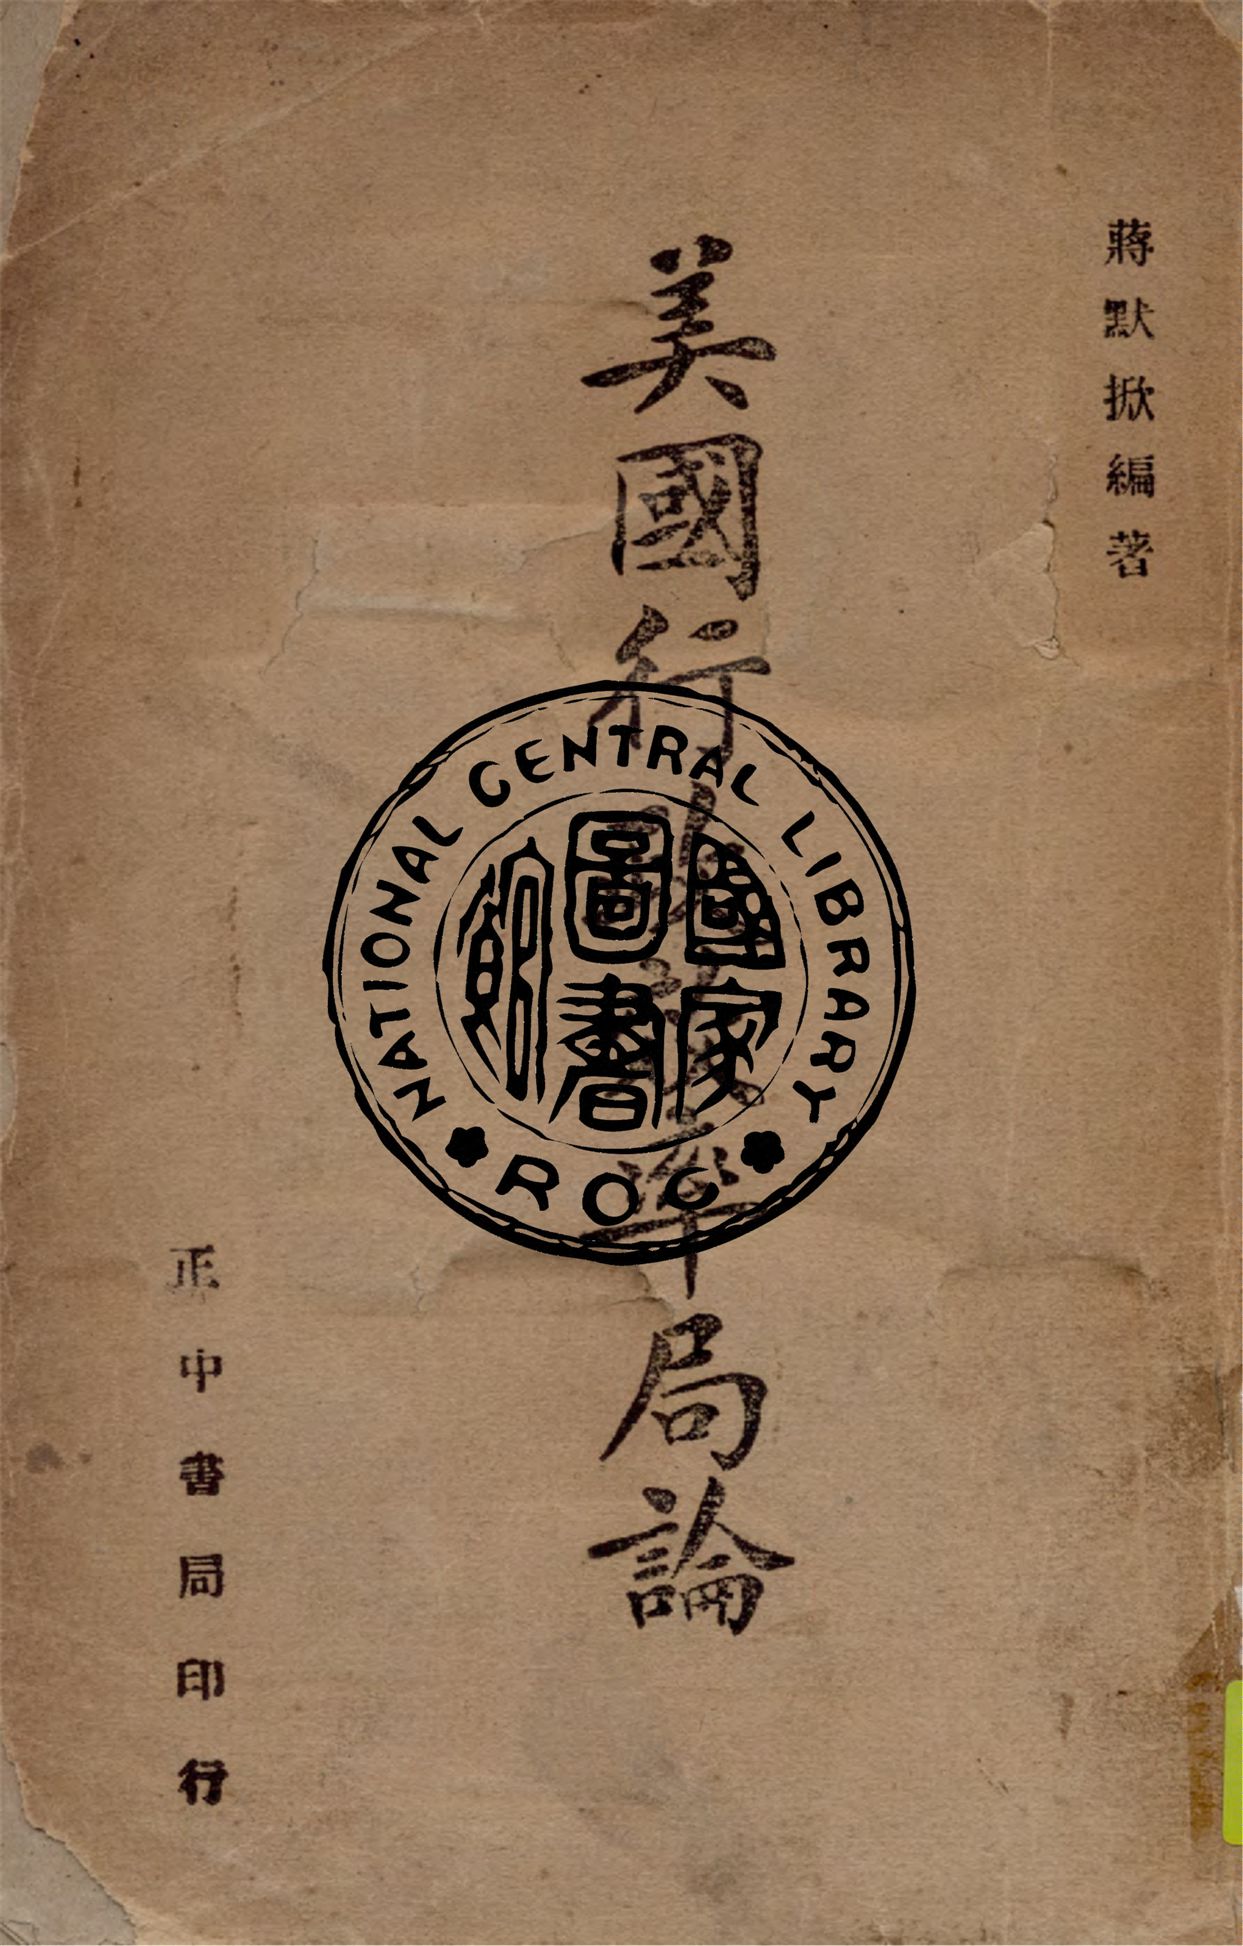 蔣默掀編著
美國行率局論
正中書局印行
NATIONAL CENTRAL LIBRARY
國家圖書館
ROC